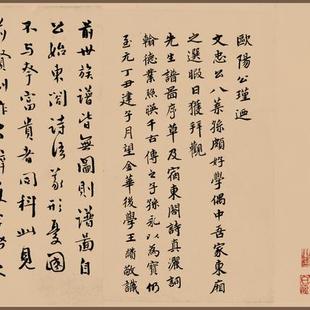 歐陽公瑾迺
文忠公八葉孫頗好學偶中吾家東廂
之選暇日獲拜觀
先生譜啚序草及宿東閣詩真灑詞
翰德業照暎千古傳之子孫永以為寶仍
至元丁丑建子月望金華後學王餚敬識
前世族譜皆無圖則譜啚自
公始東閣詩語象形憂國
不與夸富貴者同科此見